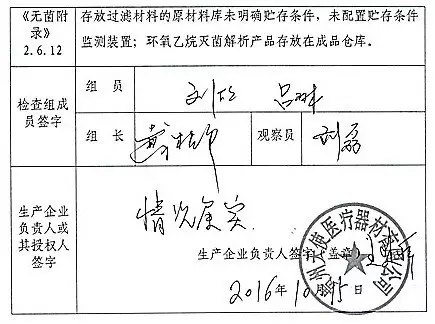 《无菌附录》
2.6.12
存放过滤材料的原材料库未明确贮存条件，未配置贮存条件
监测装置；环氧乙烷灭菌解析产品存放在成品仓库。
检查组成
员签字
组 员
组 长
观察员
生产企业
负责人或
其授权人
签字
情况属实
生产企业负责人签字（盖章）
2016年10月 日